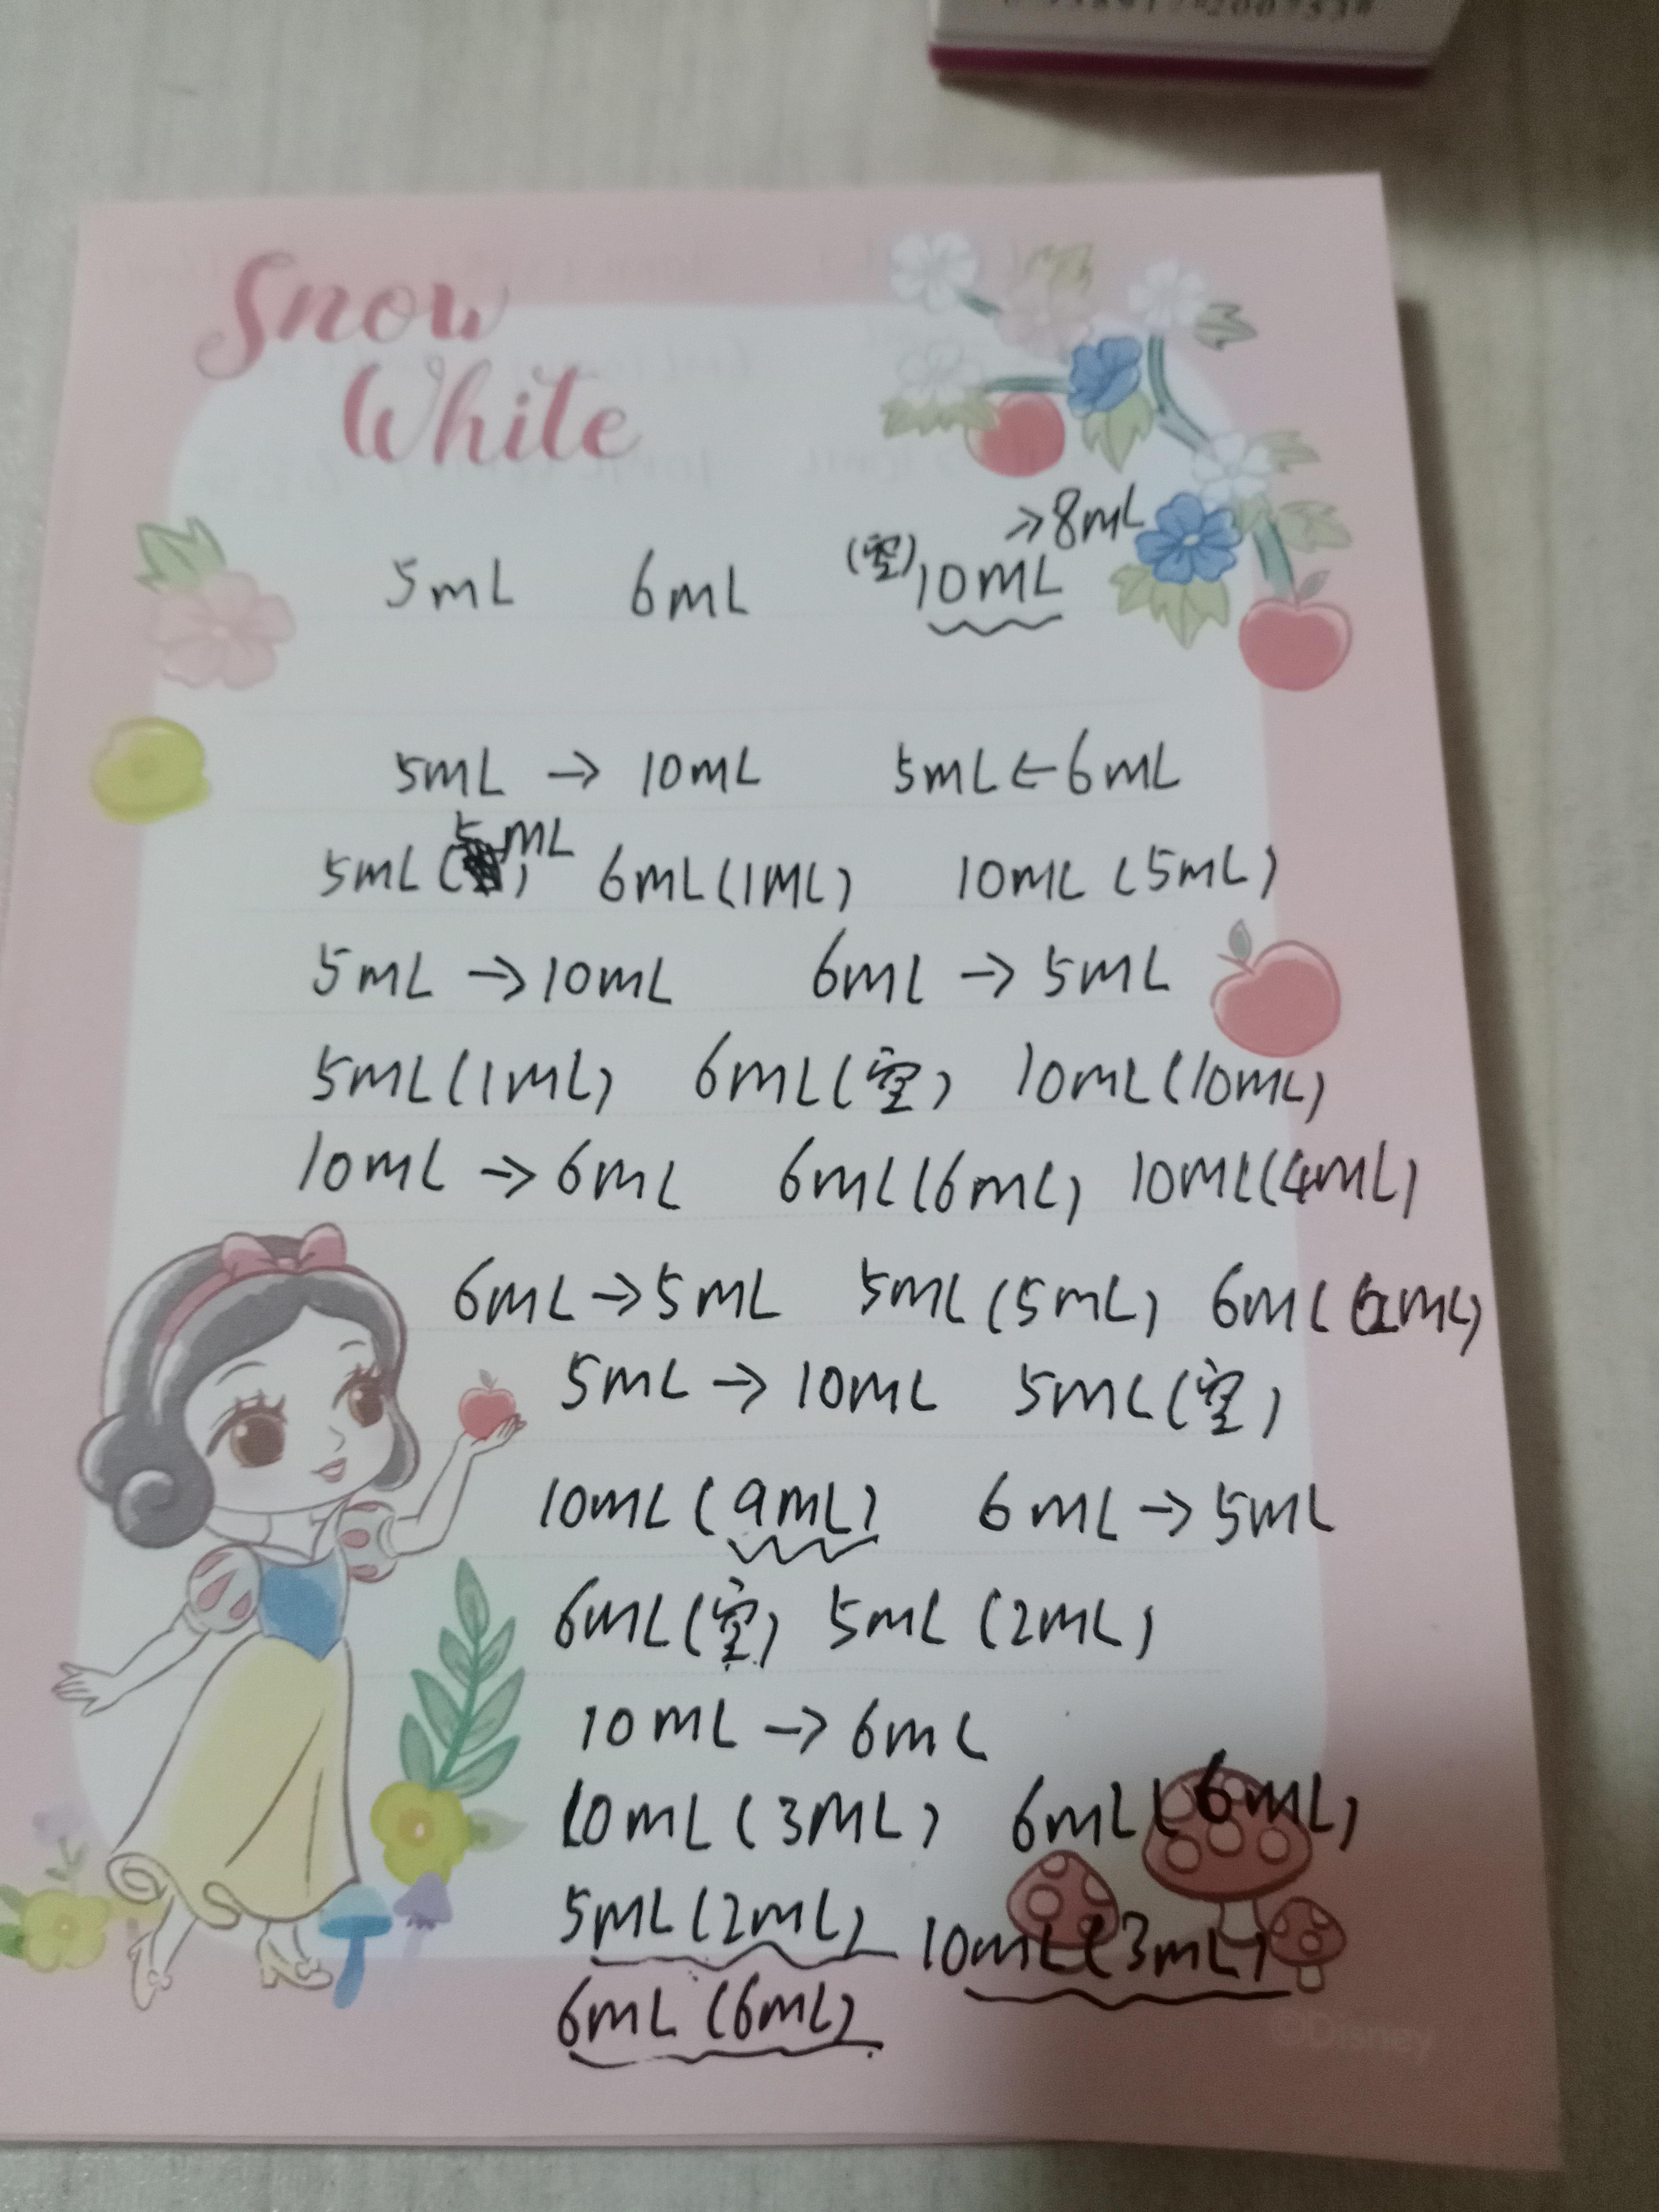 Snow
White
(空) 10mL → 8mL
5mL 6mL
5mL → 10mL 5mL ← 6mL
5mL (5mL) 6mL (1mL) 10mL (5mL)
5mL → 10mL 6mL → 5mL
5mL (1mL) 6mL (空) 10mL (10mL)
10mL → 6mL 6mL (6mL) 10mL (4mL)
6mL → 5mL 5mL (5mL) 6mL (2mL)
5mL → 10mL 5mL (空)
10mL (9mL) 6mL → 5mL
6mL (空) 5mL (2mL)
10mL → 6mL
10mL (3mL) 6mL (6mL)
5mL (2mL) 10mL (3mL)
6mL (6mL)
©Disney